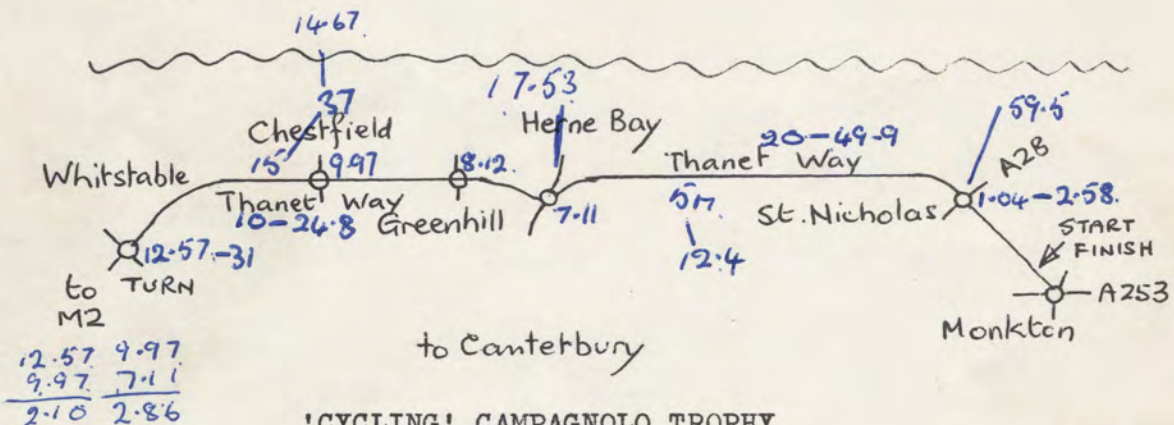 14.67
37
17.53
Chestfield
Herne Bay
59.5
15
9.97
8.12
20-49.9
A28
Whitstable
Thanet Way
Thanet Way
10-24.8
Greenhill
7.11
5M
12.4
St. Nicholas
1.04-2.58
START
FINISH
12.57-31
TURN
to
M2
A253
Monkton
to Canterbury
12.57 9.97
9.97 7.11
2.10 2.86
'CYCLING' CAMPAGNOLO TROPHY